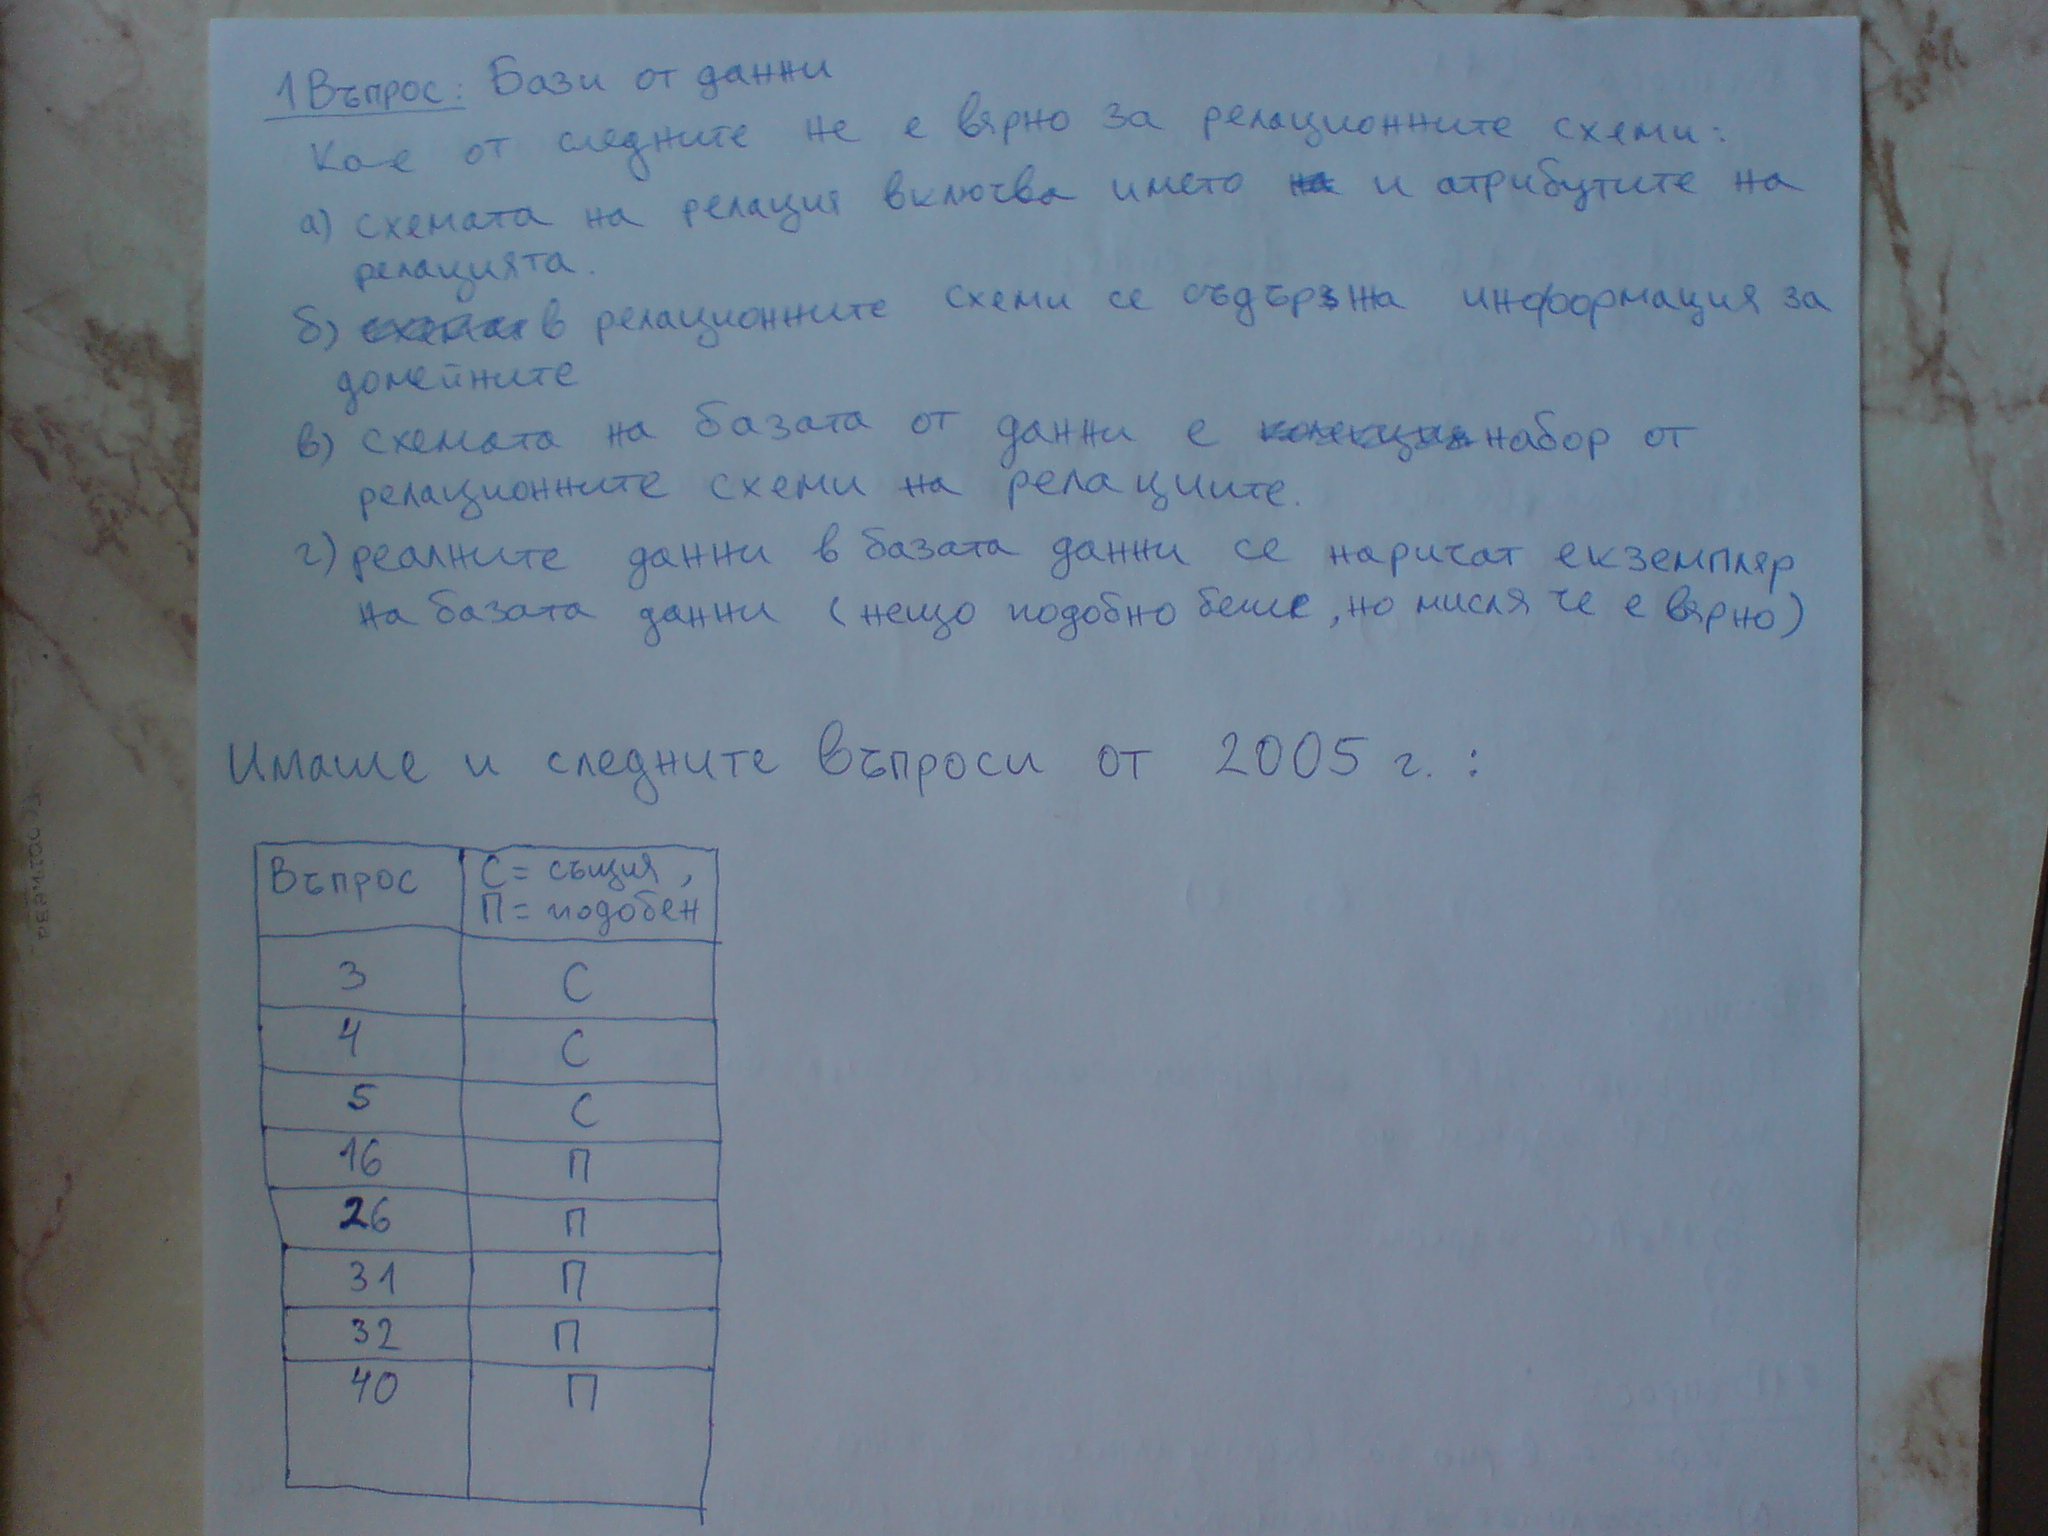 1 Въпрос: Бази от данни
Кое от следните не е вярно за релационните схеми:
а) схемата на релация включва името и атрибутите на
релацията.
б) в релационните схеми се съдържа информация за
домейните
в) схемата на базата от данни е набор от
релационните схеми на релациите.
г) реалните данни в базата данни се наричат екземпляр
на базата данни (нещо подобно беше, но мисля че е вярно)
Имаше и следните въпроси от 2005 г. :
Въпрос С = същия ,
П = подобен
3 С
4 С
5 С
16 П
26 П
31 П
32 П
40 П